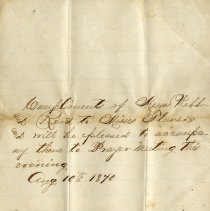 Compliments of Messrs Webb
& Reid to Misses Slavens
& will be pleased to accompa
ny them to Prayer meeting this
evening
Aug 10th 1870